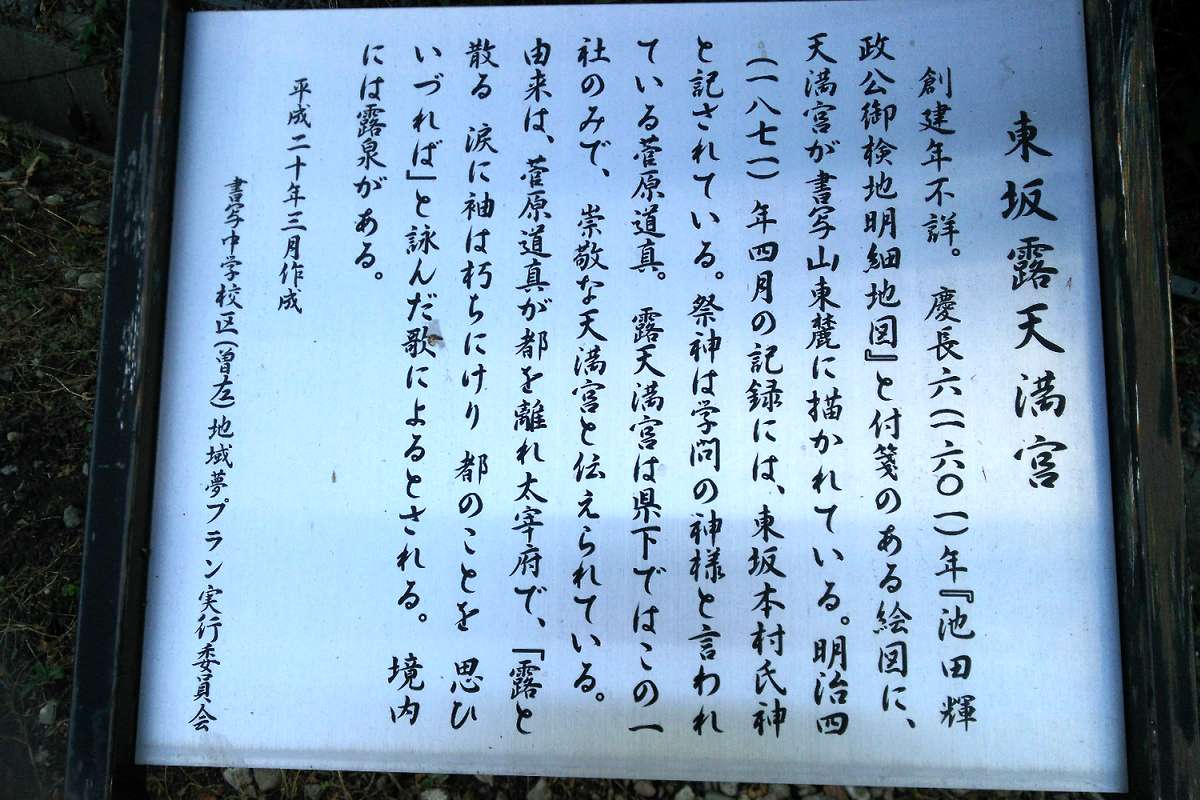 東坂露天満宮
創建年不詳。慶長六(一六〇一)年『池田輝
政公御検地明細地図』と付箋のある絵図に、
天満宮が書写山東麓に描かれている。明治四
(一八七一)年四月の記録には、東坂本村氏神
と記されている。祭神は学問の神様と言われ
ている菅原道真。露天満宮は県下ではこの一
社のみで、崇敬な天満宮と伝えられている。
由来は、菅原道真が都を離れ太宰府で、「露と
散る 涙に袖は朽ちにけり 都のことを 思ひ
いづれば」と詠んだ歌によるとされる。境内
には露泉がある。
平成二十年三月作成
書写中学校区(曽左)地域夢プラン実行委員会